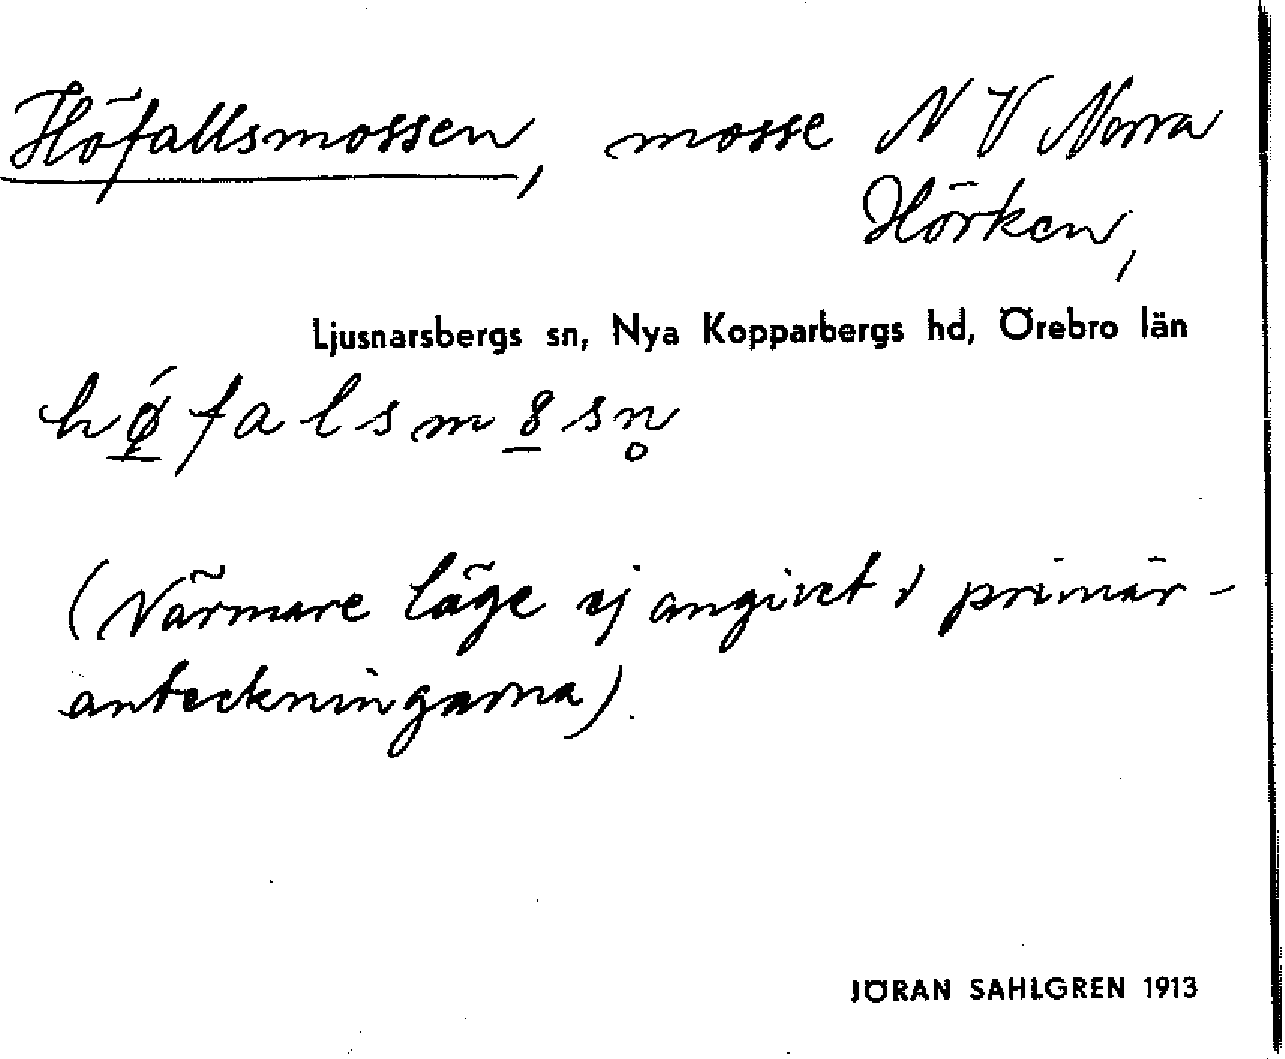 Höfallsmossen, mosse NV Norra
Hörken,
Ljusnarsbergs sn, Nya Kopparbergs hd, Örebro län
hǿfalsm8sn̥
(Närmare läge ej angivet i primär-
anteckningarna).
JÖRAN SAHLGREN 1913